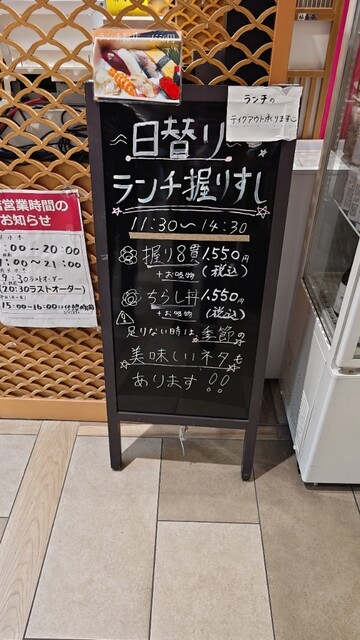 ランチの
テイクアウト承ります
〜日替り〜
ランチ握りすし
11:30〜14:30
握り8貫 1.550円
+お吸物 (税込)
ちらし丼 1.550円
+お吸物 (税込)
足りない時は 季節の
美味しいネタも
あります!!
営業時間の
お知らせ
:00〜20:00
:00〜21:00
ラストオーダー
(20:30ラストオーダー)
15:00-16:00